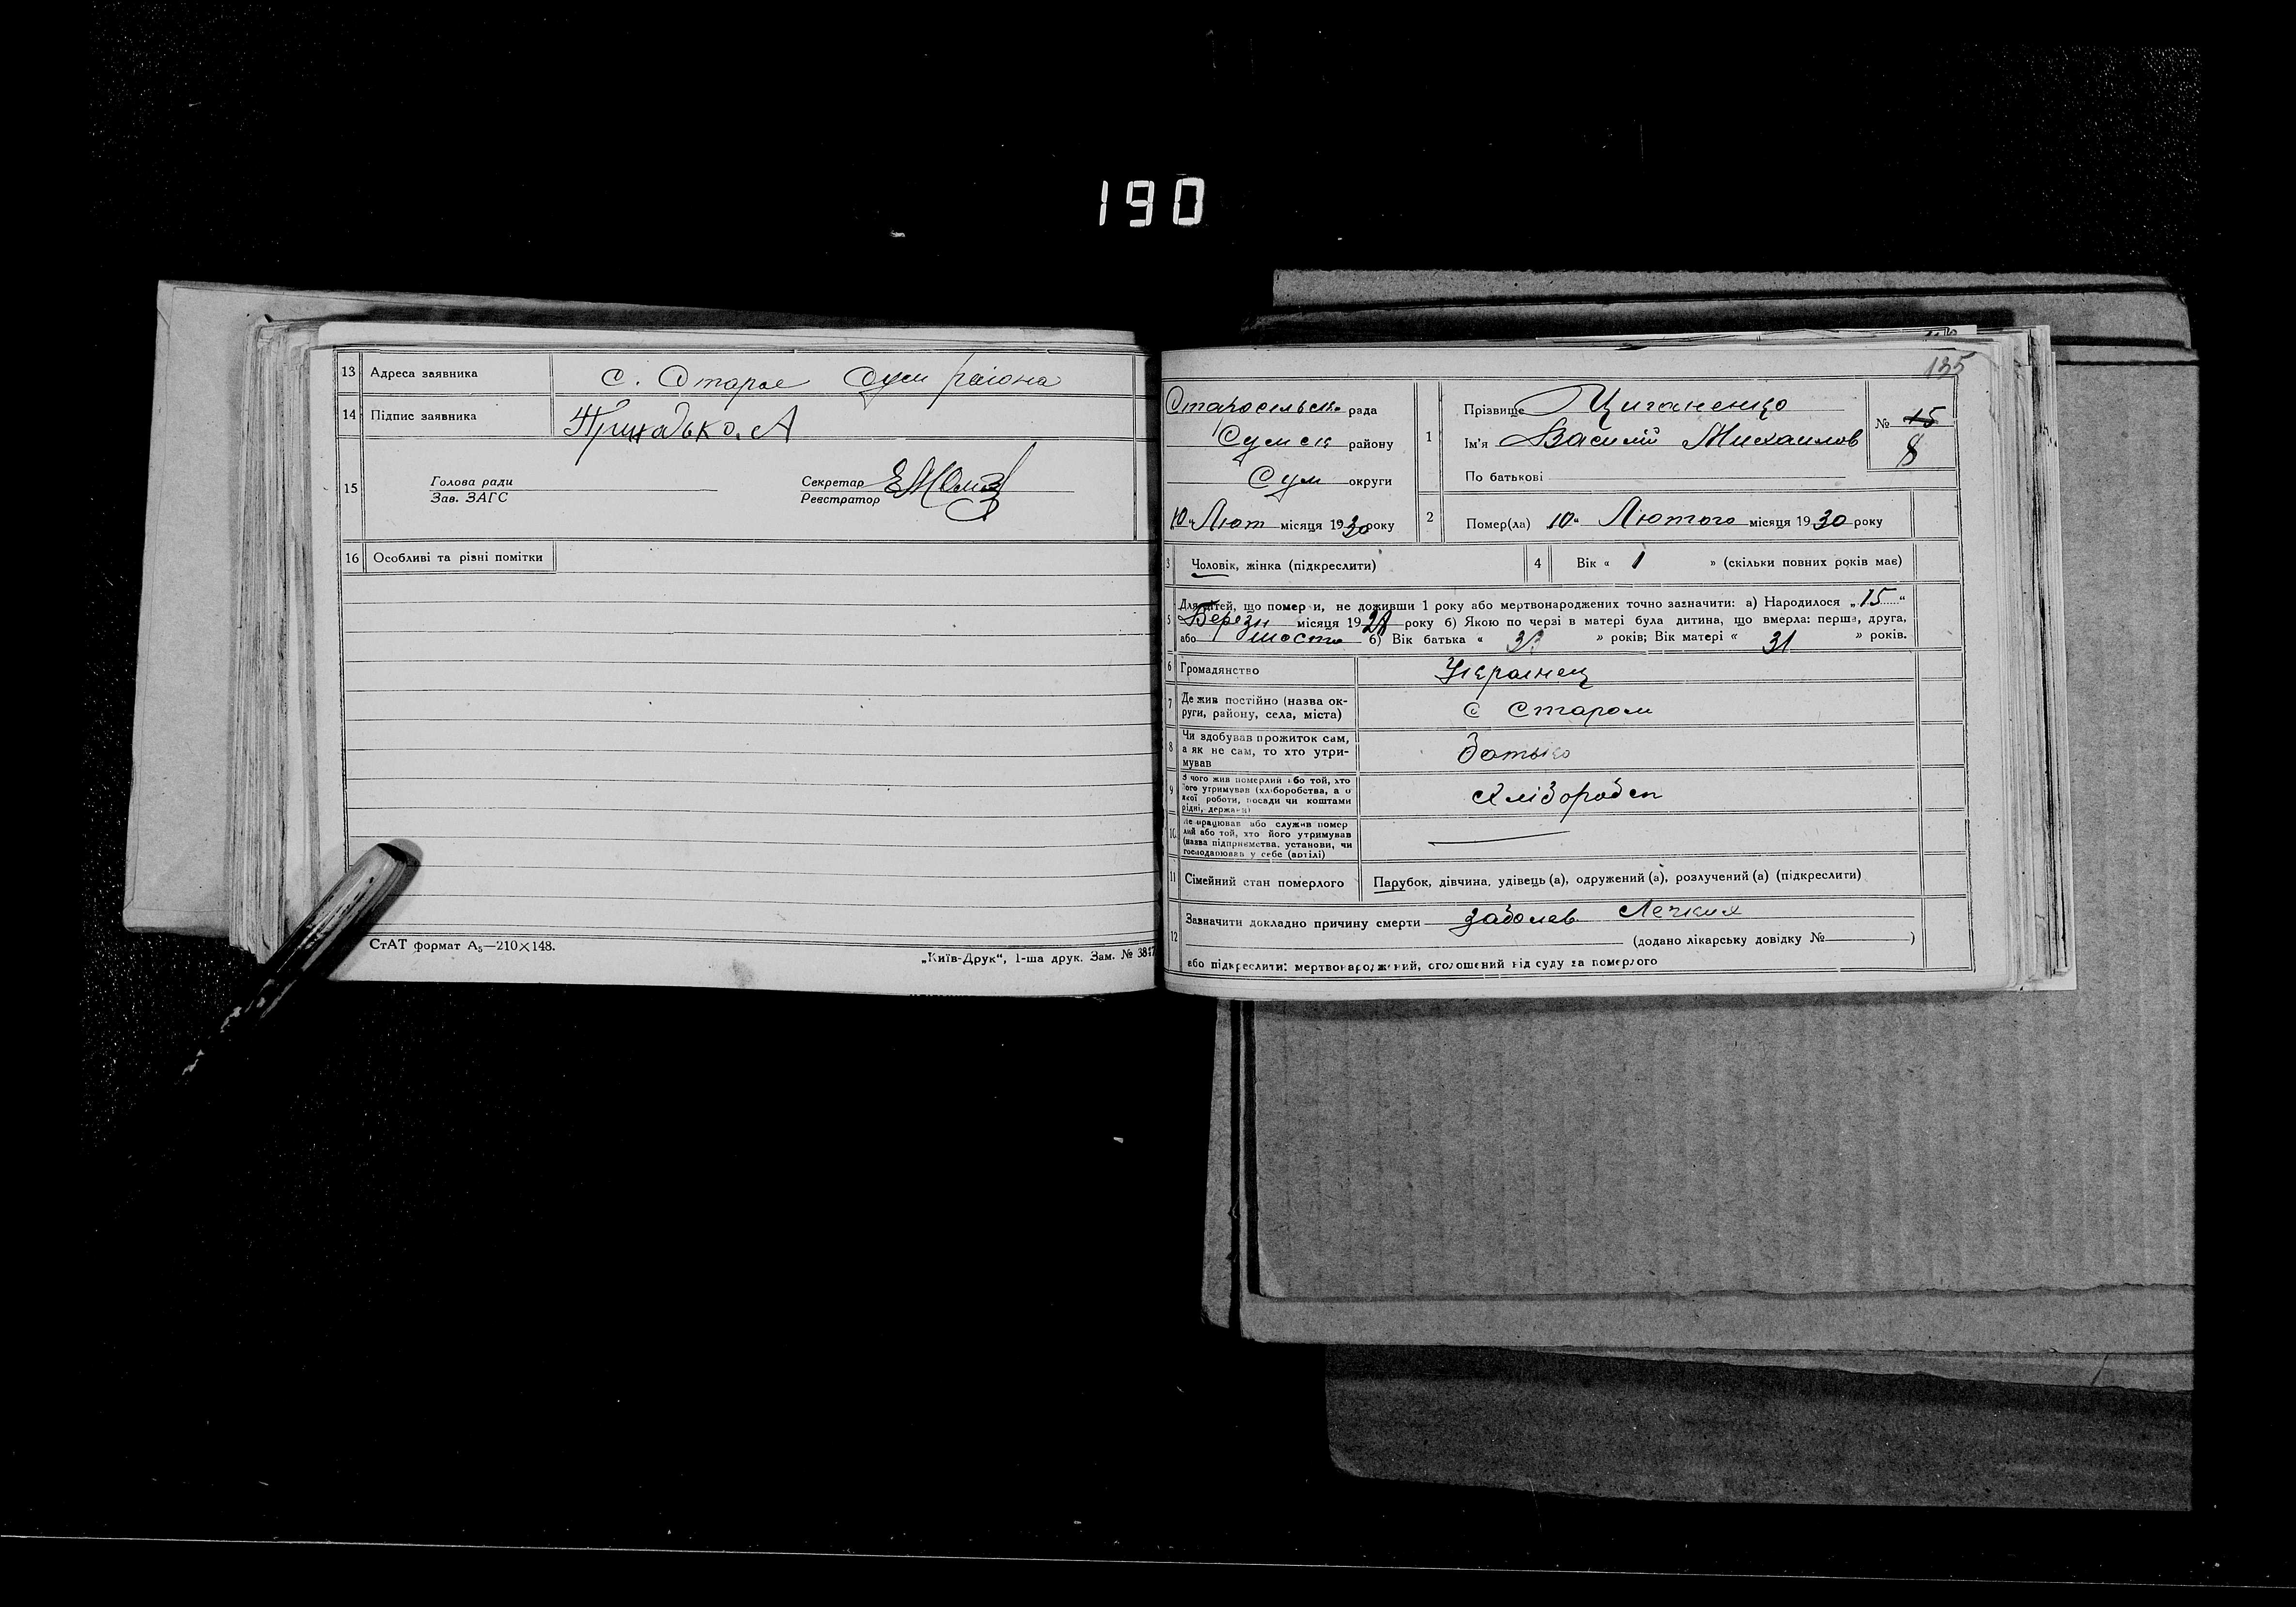 190
13 Адреса заявника с. Старое Сум района
14 Підпис заявника Прикадько. А
15 Голова ради
Зав. ЗАГС
Секретар
Реєстратор
16 Особливі та різні помітки
СтАТ формат А5—210×148.
„Київ-Друк“, 1-ша друк. Зам. №
135
Старосільська рада
Сумск району
Сум округи
10 „ Лют місяця 1930 року
1 Прізвище Циганенко
Ім'я Василій Михаилов
По батькові
№ 15
8
2 Помер(ла) 10 „ Лютого місяця 1930 року
3 Чоловік, жінка (підкреслити)
4 Вік « 1 » (скільки повних років має)
5 Для дітей, що померли, не доживши 1 року або мертвонароджених точно зазначити: а) Народилося „15“
Березн місяця 1928 року б) Якою по черзі в матері була дитина, що вмерла: перша, друга,
або шоста б) Вік батька « 33 » років; Вік матері « 31 » років.
6 Громадянство Українец
7 Де жив постійно (назва ок-
руги, району, села, міста) с Старом
8 Чи здобував прожиток сам,
а як не сам, то хто утри-
мував батько
9 З чого жив померлий або той, хто
його утримував (хліборобства, а о
якої роботи, посади чи коштами
рідні, держави) Хлібороб
10 Де працював або служив помер
лий або той, хто його утримував
(назва підприємства, установи, чи
господарював у себе (артілі)
11 Сімейний стан померлого Парубок, дівчина, удівець (а), одружений (а), розлучений (а) (підкреслити)
12 Зазначити докладно причину смерти заболев Легких
(додано лікарську довідку № )
або підкреслити: мертвонароджений, оголошений від суду за померлого